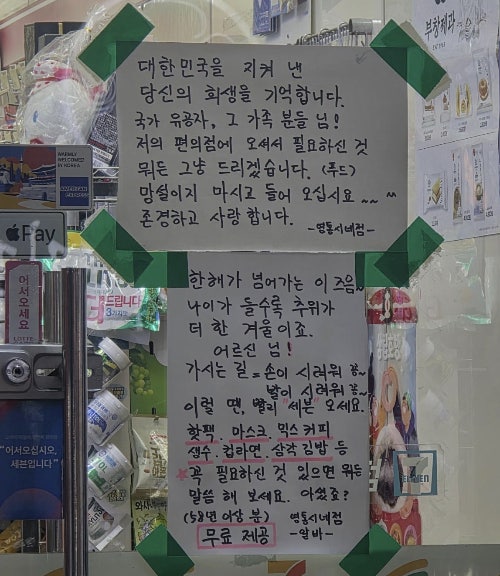 대한민국을 지켜 낸
당신의 희생을 기억합니다.
국가 유공자, 그 가족 분들 님!
저의 편의점에 오셔서 필요하신 것
뭐든 그냥 드리겠습니다. (푸드)
망설이지 마시고 들어 오십시요 ~~ ^^
존경하고 사랑합니다.
-명통시네점-
한해가 넘어가는 이즈음~
나이가 들수록 추위가
더 한 겨울이죠.
어르신 님!
가시는 길 = 손이 시려워 꽁~
발이 시려워 꽁~
이럴 땐, 빨리 "세븐" 오세요.
핫팩, 마스크, 믹스커피
생수, 컵라면, 삼각김밥 등
꼭 필요하신 것 있으면 뭐든
말씀 해 보세요. 아셨죠?
(58면 이상 분) 명통시네점
무료 제공 -알바-
부창제과
WARMLY
WELCOMES!
IN KOREA
Pay
어서오세요
드립니다
"어서오십시오,
세븐입니다"